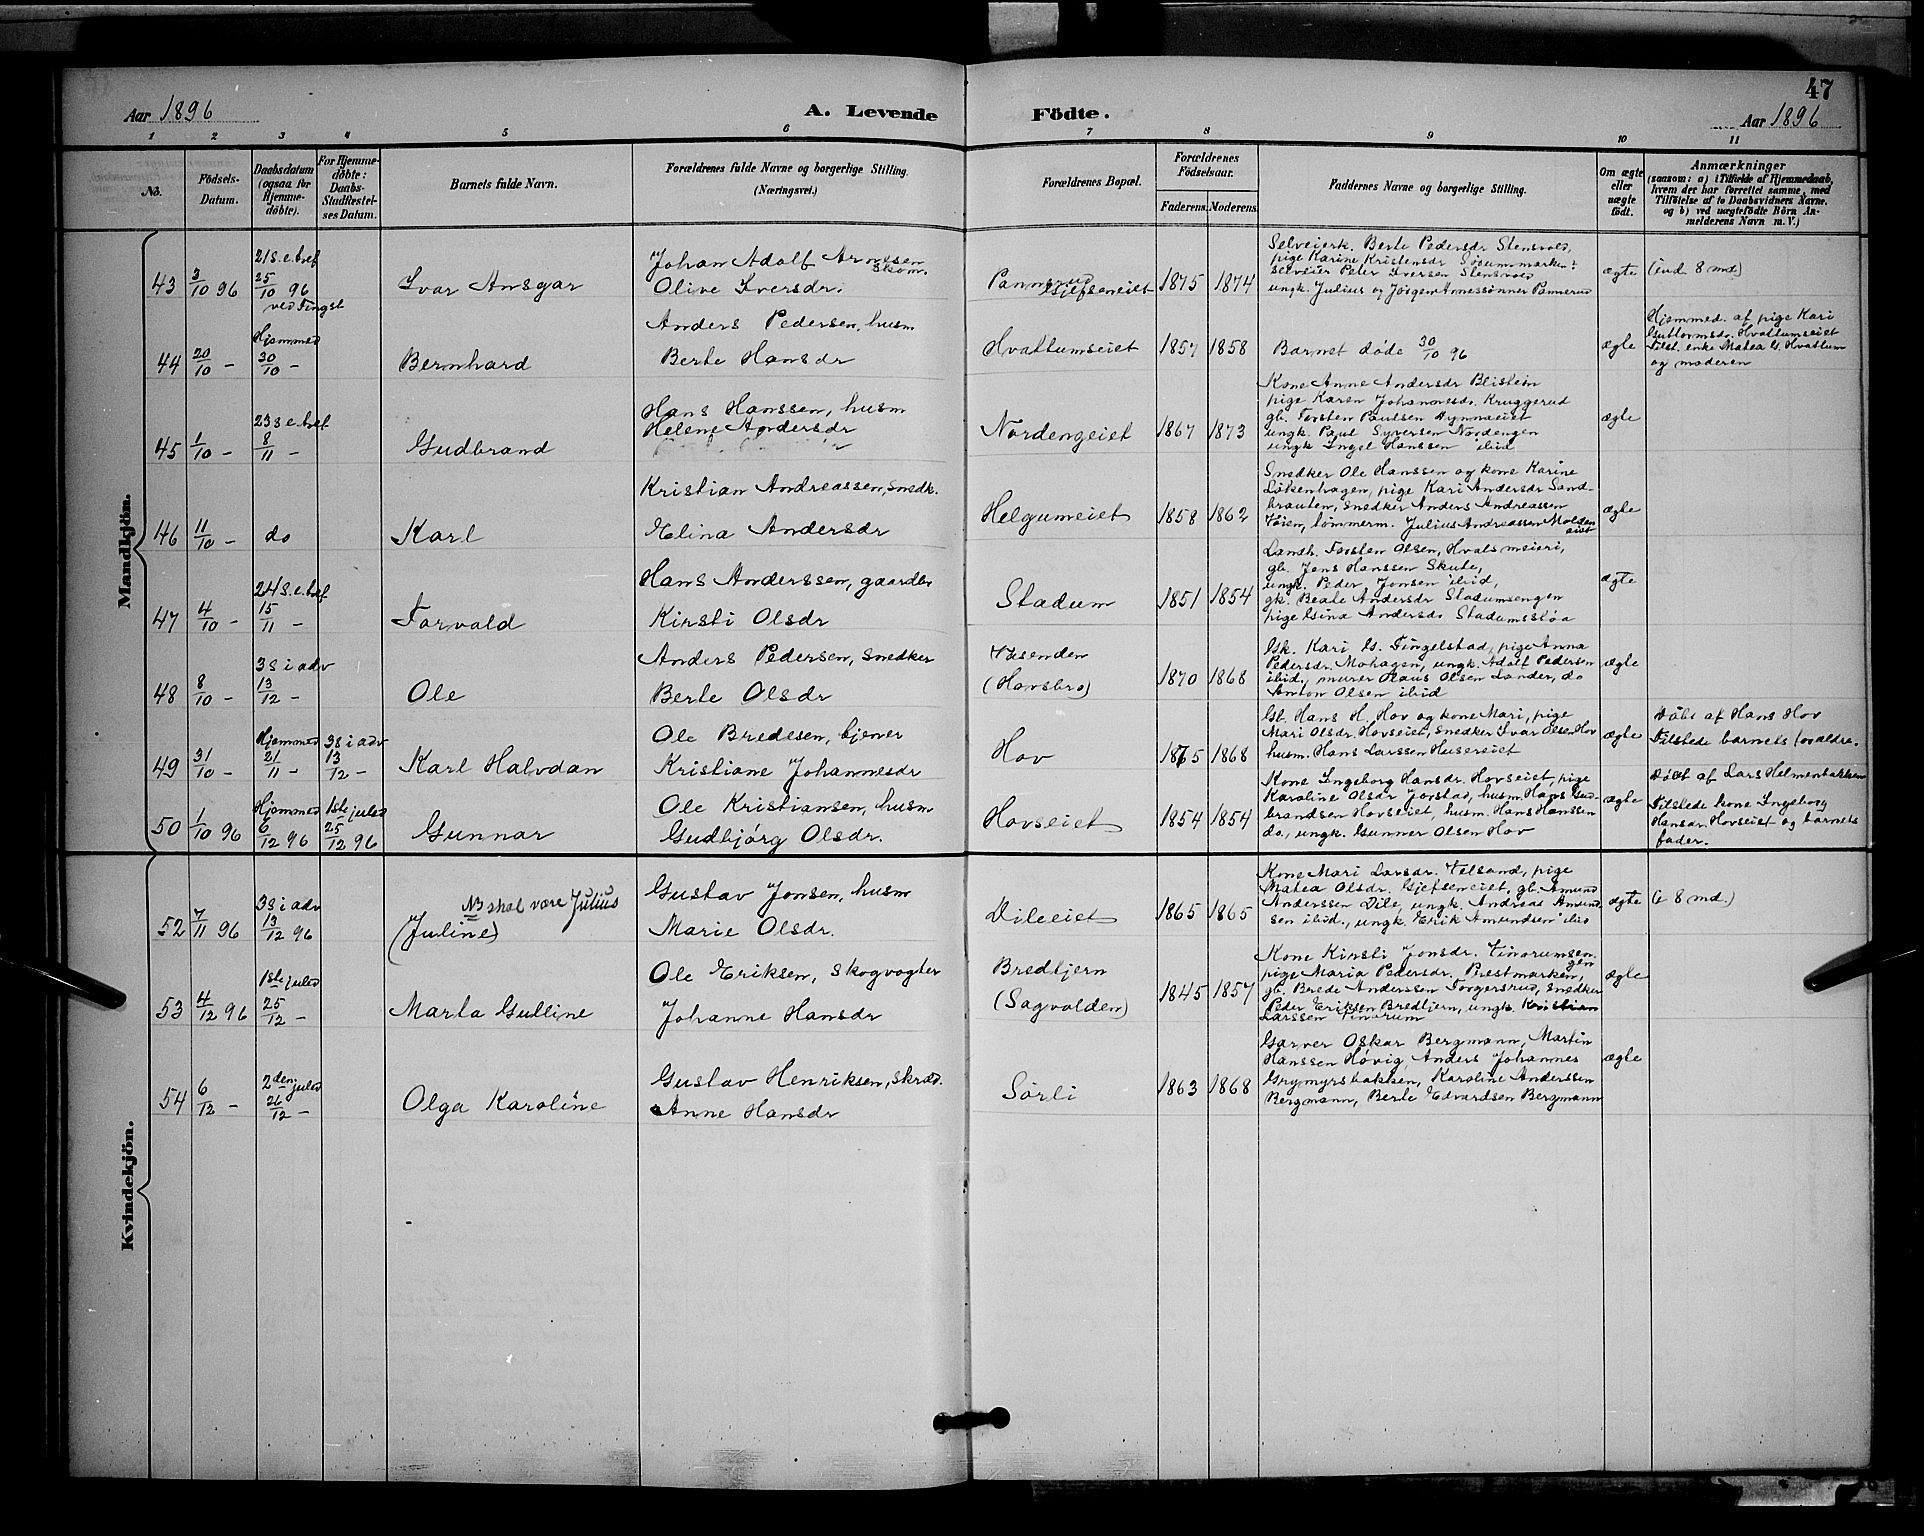 47
Aar 1896
A. Levende Födte.
Aar 1896
1 2 3 4 5 6 7 8 9 10 11
No.
Födsels-Datum.
Daabsdatum (ogsaa for Hjemme-döbte).
For Hjemme-döbte: Daabs-Stadfæstel-ses Datum.
Barnets fulde Navn.
Forældrenes fulde Navne og borgerlige Stilling.
(Næringsvei.)
Forældrenes Bopæl.
Forældrenes Födselsaar.
Faderens. Moderens.
Faddernes Navne og borgerlige Stilling.
Om ægte eller uægte födt.
Anmærkninger
(saasom: a) i Tilfælde af Hjemmedaab,
hvem der har forrettet samme, med
Tilföielse af to Daabsvidners Navne.
og b) ved uægtefödte Börn An-
melderens Navn m. V.)
Mandkjön.
43 3/10 96
21 s. e. tref
25/10 96
ved Tingst
Ivar Ansgar
Johan Adolf Arnesen
Skom.
Olive Iversdr.
Pannerud
Gjefseneiet
1875 1874
Selveierk. Berte Pedersdr Stensvold,
pige Karine Kristensdr
selveier Peter Iversen Stensvold
ungk. Julius og Jörgen Arnessönner Pannerud
ægte
8 md)
44 20/10 –
Hjemmed
30/10 –
Bernhard
Anders Pedersen, husm
Berte Hansdr
Hvattumseiet
1857 1858
Barnet döde 30/10 96
ægte
Hjemmed. af pige Kari
Guttormsdr. Hvattumseiet
Tilst. enke Matea G. Hvattum
og moderen
45 1/10 –
23 s e. tref
8/11 –
Gudbrand
Hans Hanssen, husm
Helene Andersdr
Nordengeiet
1867 1873
Kone Anne Andersdr Blistein
pige Karen Johannesdr. Kruggerud
gb. Torsten Paulsen Gynnaeiet
ungk. Paul Syversen Nordengen
ungk Engel Hanssen ibid
ægte
46 11/10 –
do
Karl
Kristian Andreassen, Snedk.
Elina Andersdr
Helgumeiet
1858 1862
Snedker Ole Hanssen og kone Karine
Lökenhagen, pige Kari Andersdr Sand-
brauten, snedker Anders Andreassen
Töien, tömmerm. Julius Andreassen Molden
eiet
ægte
47 4/10 –
24 s. e. tref
15/11 –
Torvald
Hans Anderssen, gaardbr
Kirsti Olsdr
Stadum
1851 1854
Landh. Torsten Olsen, Hvals meieri,
gb. Jens Hanssen Skute,
ungk. Peder Jonsen ibid,
gk. Beate Andersdr Stadumsengen
pige Gina Andersdr Stadumsslöa
ægte
48 8/10 –
3 s i adv
13/12 –
Ole
Anders Pedersen, Snedker
Berte Olsdr
Væsenden
(Hansbro)
1870 1868
Gk. Kari G. Tingelstad, pige Anna
Pedersdr. Mohagen, ungk. Adolf Pedersen
ibid, murer Olaus Olsen Lander, do
Anton Olsen ibid
ægte
49 31/10 –
Hjemmed
21/11 –
3 s i adv
13/12 –
Karl Halvdan
Ole Bredesen, tjener
Kristiane Johannesdr
Hov
1875 1868
Gb. Hans H. Hov og kone Mari, pige
Mari Olsdr. Hovseiet, snedker Ivar Olsen Hov
husm. Hans Larssen Husereiet
ægte
Döbt af Hans Hov
Tilstede barnets forældre.
50 1/10 96
Hjemmed
6/12 96
1ste juled
25/12 96
Gunnar
Ole Kristiansen, husm
Gudbjörg Olsdr.
Hovseiet
1854 1854
Kone Ingeborg Hansdr. Hovseiet, pige
Karoline Olsdr Jorstad, husm. Hans Gud-
brandsen Hovseiet, husm. Hans Hanssen
do., ungk. Gunner Olsen Hov
ægte
Döbt af Lars Helmenbakken
Tilstede kone Ingeborg
Hansdr. Hovseiet og barnets
fader.
Kvindekjön.
52 7/11 96
3 s i adv
13/12 96
NB skal være Julius
(Juline)
Gustav Jonsen, husm
Marie Olsdr.
Dileeiet
1865 1865
Kone Mari Larsdr. Velsand, pige
Matea Olsdr. Gjefseneiet, gb. Amund
Anderssen Dile, ungk. Andreas Amund
sen ibid., ungk. Erik Amundsen ibid
ægte
8 md.)
53 4/12 96
1ste juled
25/12 –
Marta Gulline
Ole Eriksen, skogvogter
Johanne Hansdr
Bredtjern
(Sagvolden)
1845 1857
Kone Kirsti Jonsdr. Vinorumsen
gen
pige Maria Pedersdr. Prestmarken,
gb. Brede Anderssen Torgersrud, snedker
Peder Eriksen Bredtjern, ungk. Kristian
Larssen Vinorum
ægte
54 6/12 –
2den juled
26/12 –
Olga Karoline
Gustav Henriksen, skræd.
Anne Hansdr
Sörli
1863 1868
Garver Oskar Bergmann, Martin
Hanssen Hövig, Anders Johannes
Grymyrsbakken, Karoline Anderssen
Bergmann, Berte Edvardsen Bergmann
ægte